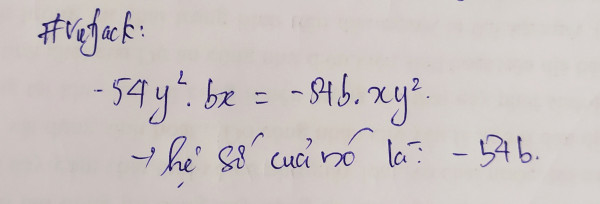 #Vietjack:
-54y². bx = -54b. xy².
→ hệ số của nó là: -54b.